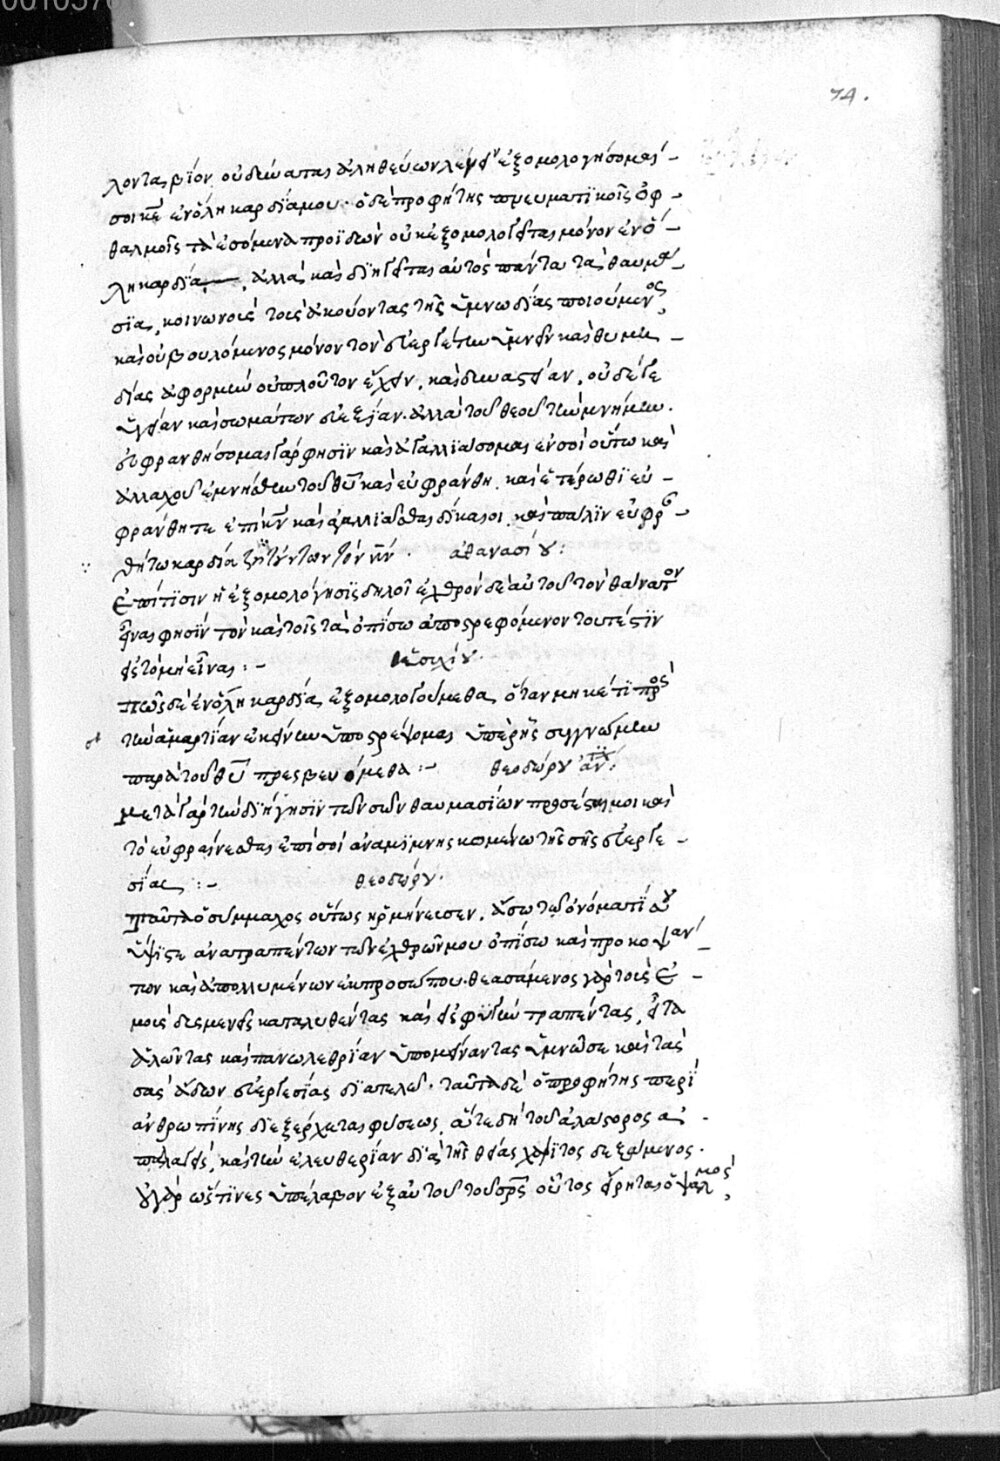 74.
λοντα βίον οὐδεὶς ἅπας ἀληθεύων λέγειν ἐξομολογήσομαί
σοι κε ἐν ὅλη καρδία μου. ὁ δὲ προφήτης πνευματικοῖς ὀφ
θαλμοῖς τὰ ἐσόμενα προϊδὼν οὐκ ἐξομολογεῖται μόνον ἐν ὅ
λη καρδία, ἀλλὰ καὶ διηγεῖται αὐτὸς πάντα τὰ θαυμά
σια, κοινωνοὺς τοὺς ἀκούοντας τῆς ὑμνωδίας ποιούμενος,
καὶ οὐ βουλόμενος μόνον τὸν εὐεργέτην ὑμνεῖν καὶ θυμη
δίας ἀφορμὴν οὐ πλοῦτον ἔχειν, καὶ δυναστείαν, οὐδέ γε
ὑγείαν καὶ σωμάτων εὐεξίαν. ἀλλὰ τοῦ θεοῦ τὴν μνήμην.
εὐφρανθήσομαι γάρ φησιν καὶ ἀγαλλιάσομαι ἐν σοὶ οὕτω καὶ
ἀλλαχοῦ ἐμνήσθην τοῦ θυ καὶ εὐφράνθη. καὶ ἑτέρωθι εὐ
φράνθητε ἐπὶ κν καὶ ἀγαλλιᾶσθαι δίκαιοι. καὶ πάλιν εὐφραν
θήτω καρδία ζητούντων τὸν κν ἀθανασίου:
Ἐπίτισιν ἡ ἐξομολόγησις δηλοῖ ἐχθρὸν δὲ αὐτοῦ τὸν θάνατον
εἶναι φησὶν τὸν καὶ τοῖς τὰ ὀπίσω ἀποστρεφόμενον τουτέστιν
εἰς τὸ μὴ εἶναι:- ἡσιχίου.
πῶς δὲ ἐν ὅλη καρδία ἐξομολογούμεθα, ὅταν μηκέτι πρὸς
τὴν ἁμαρτίαν ἐκείνην ὑποστρέψομαι ὑπὲρ ἧς συγγνώμην
παρὰ τοῦ θυ πρεσβευόμεθα:- θεοδώρου ἀντιχ:
μετὰ γὰρ τὴν διήγησιν τῶν σῶν θαυμασίων προσέσται μοι καὶ
τὸ εὐφραίνεσθαι ἐπὶ σοὶ ἀναμιμνησκομένω τῆς σῆς εὐεργε
σίας:- θεοδώρου.
ταῦτα ὁ σύμμαχος οὕτως ἡρμήνευσεν. ἄσω τῷ ὀνόματί σου
ὕψιστε ἀνατραπέντων τῶν ἐχθρῶν μου ὀπίσω καὶ προκοψάν
των καὶ ἀπολλυμένων ἐκ προσώπου. θεασάμενος γὰρ τοὺς ἐ
μοὺς δυσμενεῖς καταλυθέντας καὶ εἰς φυγὴν τραπέντας, εἶτα
ἁλῶντας καὶ πανωλεθρίαν ὑπομείναντας ὑμνῶσε καὶ τὰς
σὰς ἄδων εὐεργεσίας διατελῶ. ταῦτα δὲ ὁ προφήτης περὶ
ἀνθρωπίνης διεξέρχεται φύσεως, ἅτε δὴ τοῦ ἀλάστορος ἀ
παλαγεὶς, καὶ τὴν ἐλευθερίαν διὰ τῆς θείας χάριτος δεξάμενος.
οὐ γὰρ ὥς τινες ὑπέλαβον ἐξ αὐτοῦ τοῦ σρς οὗτος εἴρηται ὁ ψαλμός,